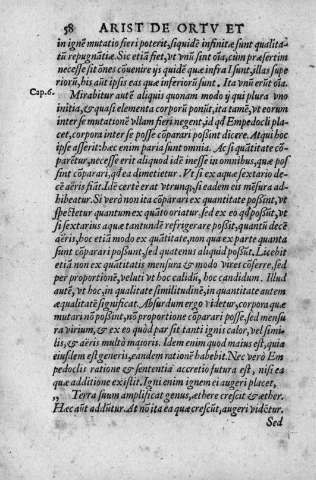 58 ARIST DE ORTV ET
in ignē mutatio fieri poterit, siquidē infinitæ sunt qualita-
tū repugnātiæ. Sic etiā fiet, vt vnū sint oīa, cùm præsertim
necesse sit oēs cōuenire ijs quidē quæ infra īsunt, illas supe
riorū, his aūt ipsis eas quæ inferiorū sunt. Ita vnū erūt oīa.
Cap.6. Mirabitur autē aliquis quonam modo ij qui plura vno
initia, & quasi elementa corporū ponūt, ita tamē, vt eorum
inter se mutationē vllam fieri negent, id qd Empedocli pla
cet, corpora inter se posse cōparari poßint dicere. Atqui hoc
ipse asserit: hæc enim paria sunt omnia. Ac si quātitate cō-
parētur, necesse erit aliquid idē inesse in omnibus, quæ pos
sint cōparari, qd ea dimetietur. Vt si ex aquæ sextario de-
cē aëris fiāt. Idē certè erat vtrunq;, si eadem eis mēsura ad-
hibeatur. Si verò non ita cōparari ex quantitate possint, vt
spectetur quantum ex quāto oriatur, sed ex eo qd possūt, vt
si sextarius aquæ tantundē refrigerare poßit, quantū decē
aëris, hoc etiā modo ex quātitate, non qua ex parte quanta
sunt cōparari possunt, sed quatenus aliquid possūt. Licebit
etiā non ex quātitatis mensura & modo vires cōferre, sed
per proportionē, veluti vt hoc calidū, hoc candidum. Illud
autē, vt hoc, in qualitate similitudinē, in quantitate autem
æqualitatē significat. Absurdum ergo videtur, corpora quæ
mutari nō possint, nō proportione cōparari posse, sed mensu
ra virium, & ex eo quòd par sit tanti ignis calor, vel simi-
lis, & aëris multò maioris. Idem enim quod maius est, quia
eiusdem est generis, eandem rationē habebit. Nec verò Em
pedoclis ratione & sententia accretio futura est, nisi ea
quæ additione existit. Igni enim ignem ei augeri placet,
„ Terra suum amplificat genus, æthere crescit & æther.
Hæc aūt addūtur. At nō ita ea quæ crescūt, augeri vidētur.
Sed